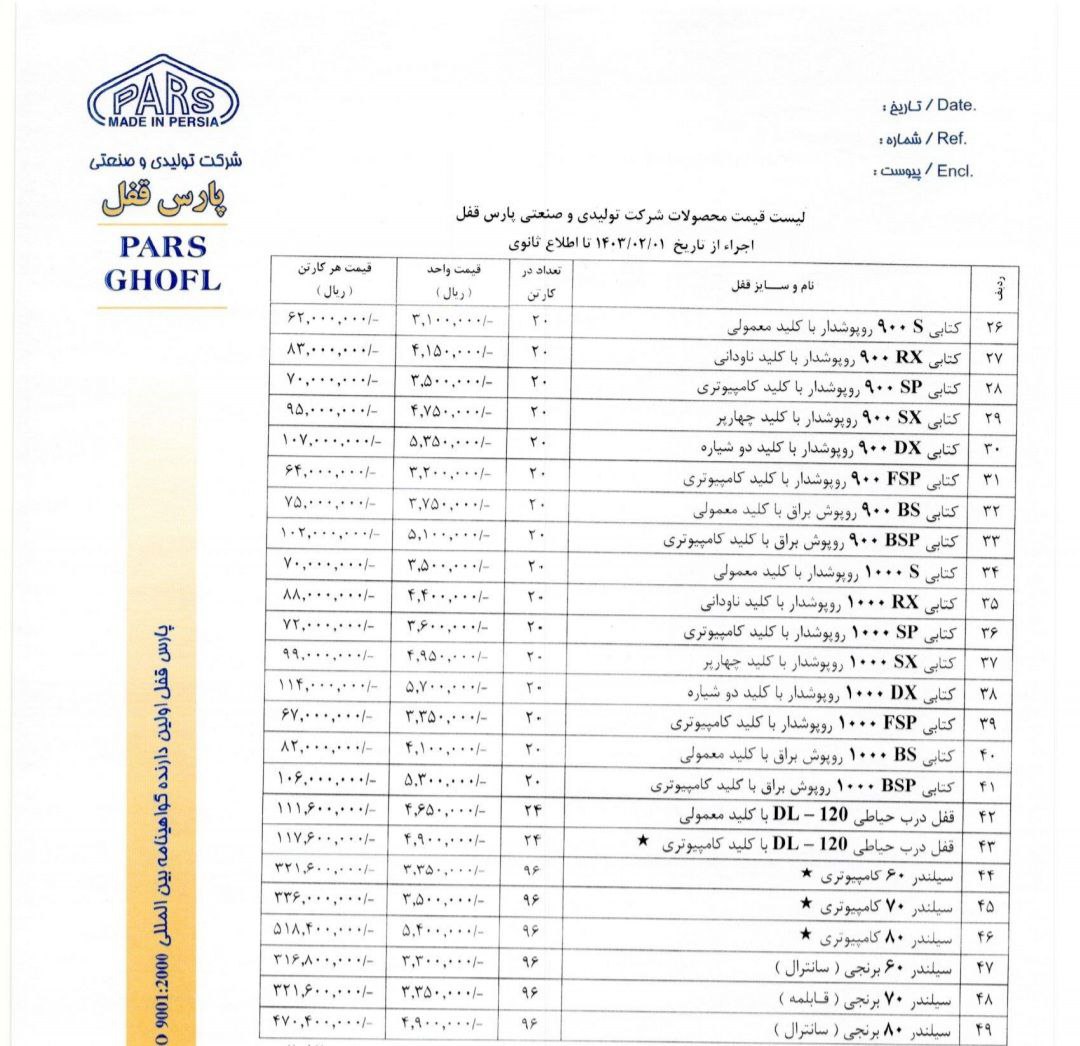 PARS
MADE IN PERSIA
شرکت تولیدی و صنعتی
پارس قفل
PARS
GHOFL
تاریخ : / Date.
شماره : / Ref.
پیوست : / Encl.
لیست قیمت محصولات شرکت تولیدی و صنعتی پارس قفل
اجراء از تاریخ ۱۴۰۳/۰۲/۰۱ تا اطلاع ثانوی
ردیف نام و ســـایز قفل تعداد در کارتن قیمت واحد ( ریال ) قیمت هر کارتن ( ریال )
۲۶ کتابی ۹۰۰ S روپوشدار با کلید معمولی ۲۰ ۳,۱۰۰,۰۰۰/- ۶۲,۰۰۰,۰۰۰/-
۲۷ کتابی ۹۰۰ RX روپوشدار با کلید ناودانی ۲۰ ۴,۱۵۰,۰۰۰/- ۸۳,۰۰۰,۰۰۰/-
۲۸ کتابی ۹۰۰ SP روپوشدار با کلید کامپیوتری ۲۰ ۳,۵۰۰,۰۰۰/- ۷۰,۰۰۰,۰۰۰/-
۲۹ کتابی ۹۰۰ SX روپوشدار با کلید چهارپر ۲۰ ۴,۷۵۰,۰۰۰/- ۹۵,۰۰۰,۰۰۰/-
۳۰ کتابی ۹۰۰ DX روپوشدار با کلید دو شیاره ۲۰ ۵,۳۵۰,۰۰۰/- ۱۰۷,۰۰۰,۰۰۰/-
۳۱ کتابی ۹۰۰ FSP روپوشدار با کلید کامپیوتری ۲۰ ۳,۲۰۰,۰۰۰/- ۶۴,۰۰۰,۰۰۰/-
۳۲ کتابی ۹۰۰ BS روپوش براق با کلید معمولی ۲۰ ۳,۷۵۰,۰۰۰/- ۷۵,۰۰۰,۰۰۰/-
۳۳ کتابی ۹۰۰ BSP روپوش براق با کلید کامپیوتری ۲۰ ۵,۱۰۰,۰۰۰/- ۱۰۲,۰۰۰,۰۰۰/-
۳۴ کتابی ۱۰۰۰ S روپوشدار با کلید معمولی ۲۰ ۳,۵۰۰,۰۰۰/- ۷۰,۰۰۰,۰۰۰/-
۳۵ کتابی ۱۰۰۰ RX روپوشدار با کلید ناودانی ۲۰ ۴,۴۰۰,۰۰۰/- ۸۸,۰۰۰,۰۰۰/-
۳۶ کتابی ۱۰۰۰ SP روپوشدار با کلید کامپیوتری ۲۰ ۳,۶۰۰,۰۰۰/- ۷۲,۰۰۰,۰۰۰/-
۳۷ کتابی ۱۰۰۰ SX روپوشدار با کلید چهارپر ۲۰ ۴,۹۵۰,۰۰۰/- ۹۹,۰۰۰,۰۰۰/-
۳۸ کتابی ۱۰۰۰ DX روپوشدار با کلید دو شیاره ۲۰ ۵,۷۰۰,۰۰۰/- ۱۱۴,۰۰۰,۰۰۰/-
۳۹ کتابی ۱۰۰۰ FSP روپوشدار با کلید کامپیوتری ۲۰ ۳,۳۵۰,۰۰۰/- ۶۷,۰۰۰,۰۰۰/-
۴۰ کتابی ۱۰۰۰ BS روپوش براق با کلید معمولی ۲۰ ۴,۱۰۰,۰۰۰/- ۸۲,۰۰۰,۰۰۰/-
۴۱ کتابی ۱۰۰۰ BSP روپوش براق با کلید کامپیوتری ۲۰ ۵,۳۰۰,۰۰۰/- ۱۰۶,۰۰۰,۰۰۰/-
۴۲ قفل درب حیاطی DL – 120 با کلید معمولی ۲۴ ۴,۶۵۰,۰۰۰/- ۱۱۱,۶۰۰,۰۰۰/-
۴۳ قفل درب حیاطی DL – 120 با کلید کامپیوتری ★ ۲۴ ۴,۹۰۰,۰۰۰/- ۱۱۷,۶۰۰,۰۰۰/-
۴۴ سیلندر ۶۰ کامپیوتری ★ ۹۶ ۳,۳۵۰,۰۰۰/- ۳۲۱,۶۰۰,۰۰۰/-
۴۵ سیلندر ۷۰ کامپیوتری ★ ۹۶ ۳,۵۰۰,۰۰۰/- ۳۳۶,۰۰۰,۰۰۰/-
۴۶ سیلندر ۸۰ کامپیوتری ★ ۹۶ ۵,۴۰۰,۰۰۰/- ۵۱۸,۴۰۰,۰۰۰/-
۴۷ سیلندر ۶۰ برنجی ( سانترال ) ۹۶ ۳,۳۰۰,۰۰۰/- ۳۱۶,۸۰۰,۰۰۰/-
۴۸ سیلندر ۷۰ برنجی ( قـابلمه ) ۹۶ ۳,۳۵۰,۰۰۰/- ۳۲۱,۶۰۰,۰۰۰/-
۴۹ سیلندر ۸۰ برنجی ( سانترال ) ۹۶ ۴,۹۰۰,۰۰۰/- ۴۷۰,۴۰۰,۰۰۰/-
پارس قفل اولین دارنده گواهینامه بین المللی O 9001:2000